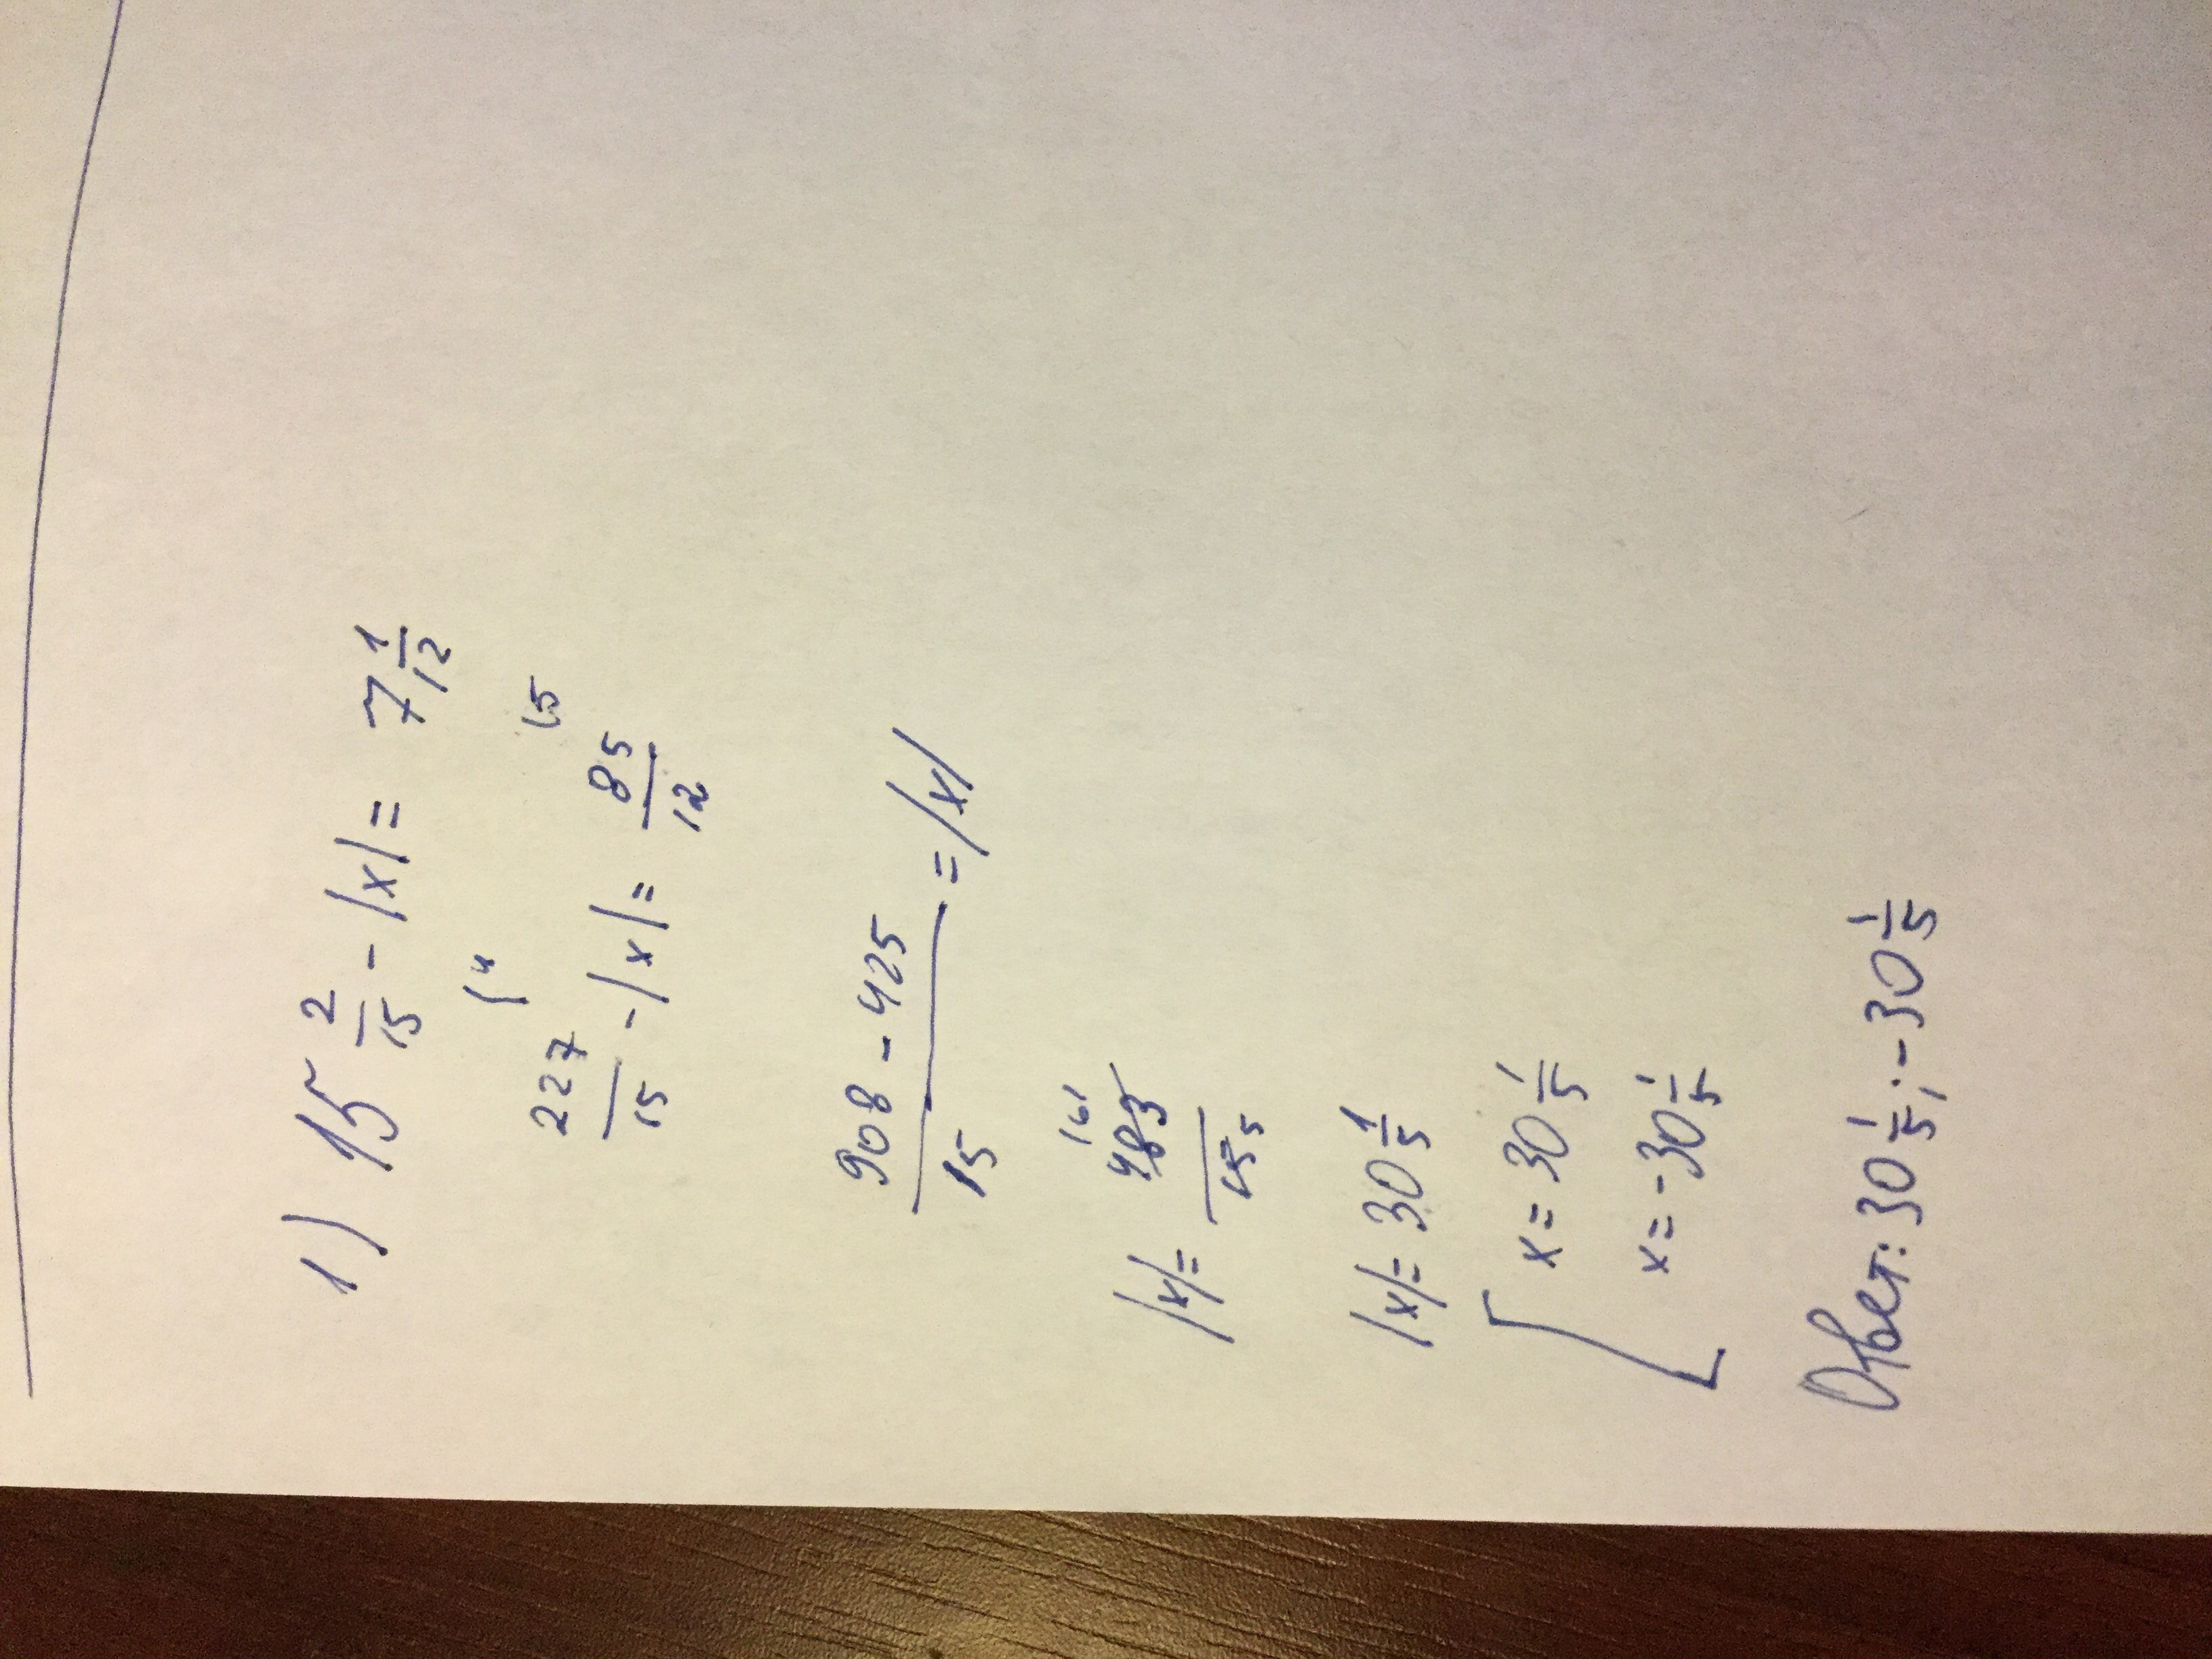 1) 15 2/15 - |x| = 7 1/12
(4 (5
227/15 - |x| = 85/12
(908 - 425)/15 = |x|
161
|x| = 483/15 5
|x| = 30 1/5
[ x = 30 1/5
x = -30 1/5
Ответ: 30 1/5; -30 1/5